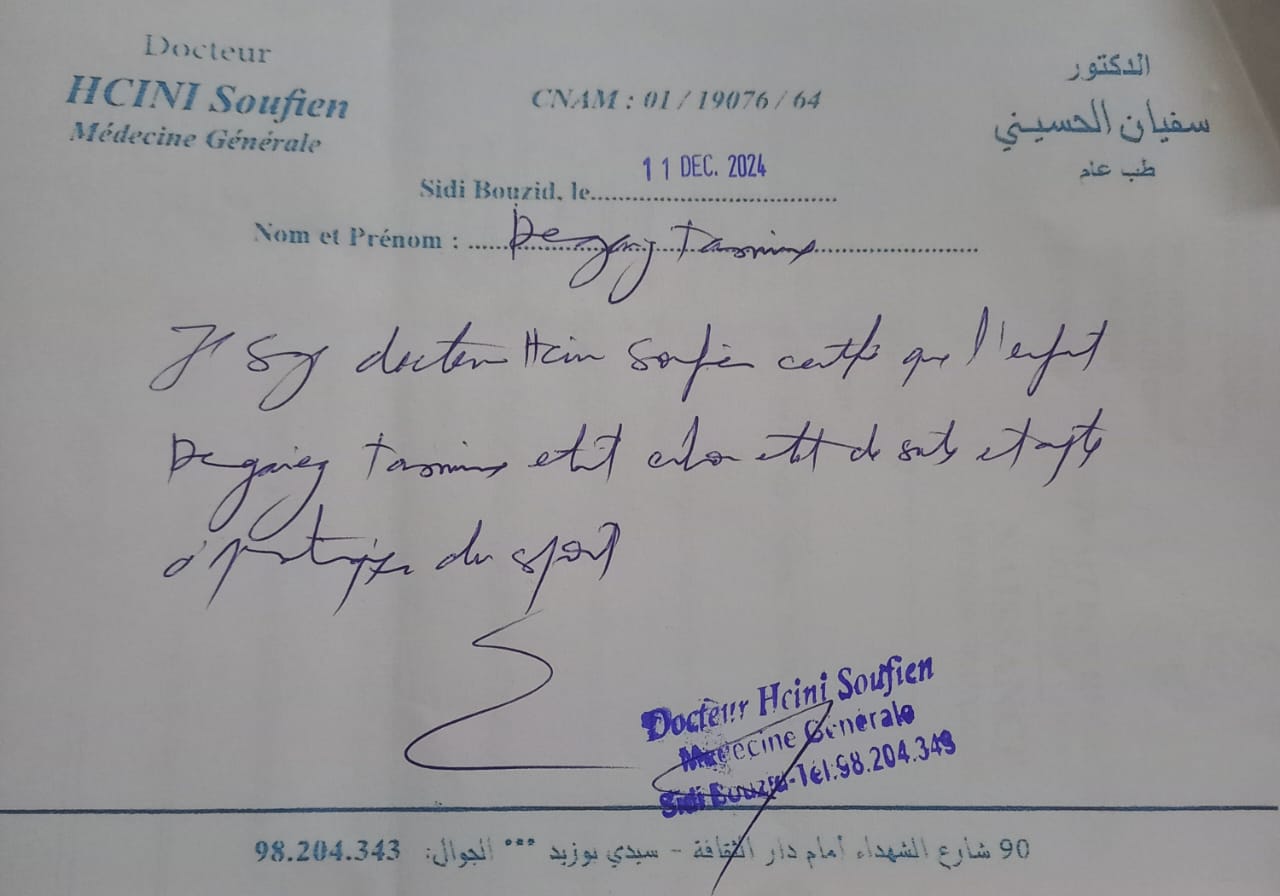 Docteur
HCINI Soufien
Médecine Générale
CNAM : 01 / 19076 / 64
الدكتور
سفيان الحسيني
طب عام
Sidi Bouzid, le 11 DEC. 2024
Nom et Prénom :
docteur Hcini Soufien certifie que l'enfant
est de santé et apte
à pratiquer du sport
Docteur Hcini Soufien
Médecine Générale
Sidi Bouzid-Tél:98.204.343
90 شارع الشهداء أمام دار الثقافة - سيدي بوزيد *** الجوال: 98.204.343